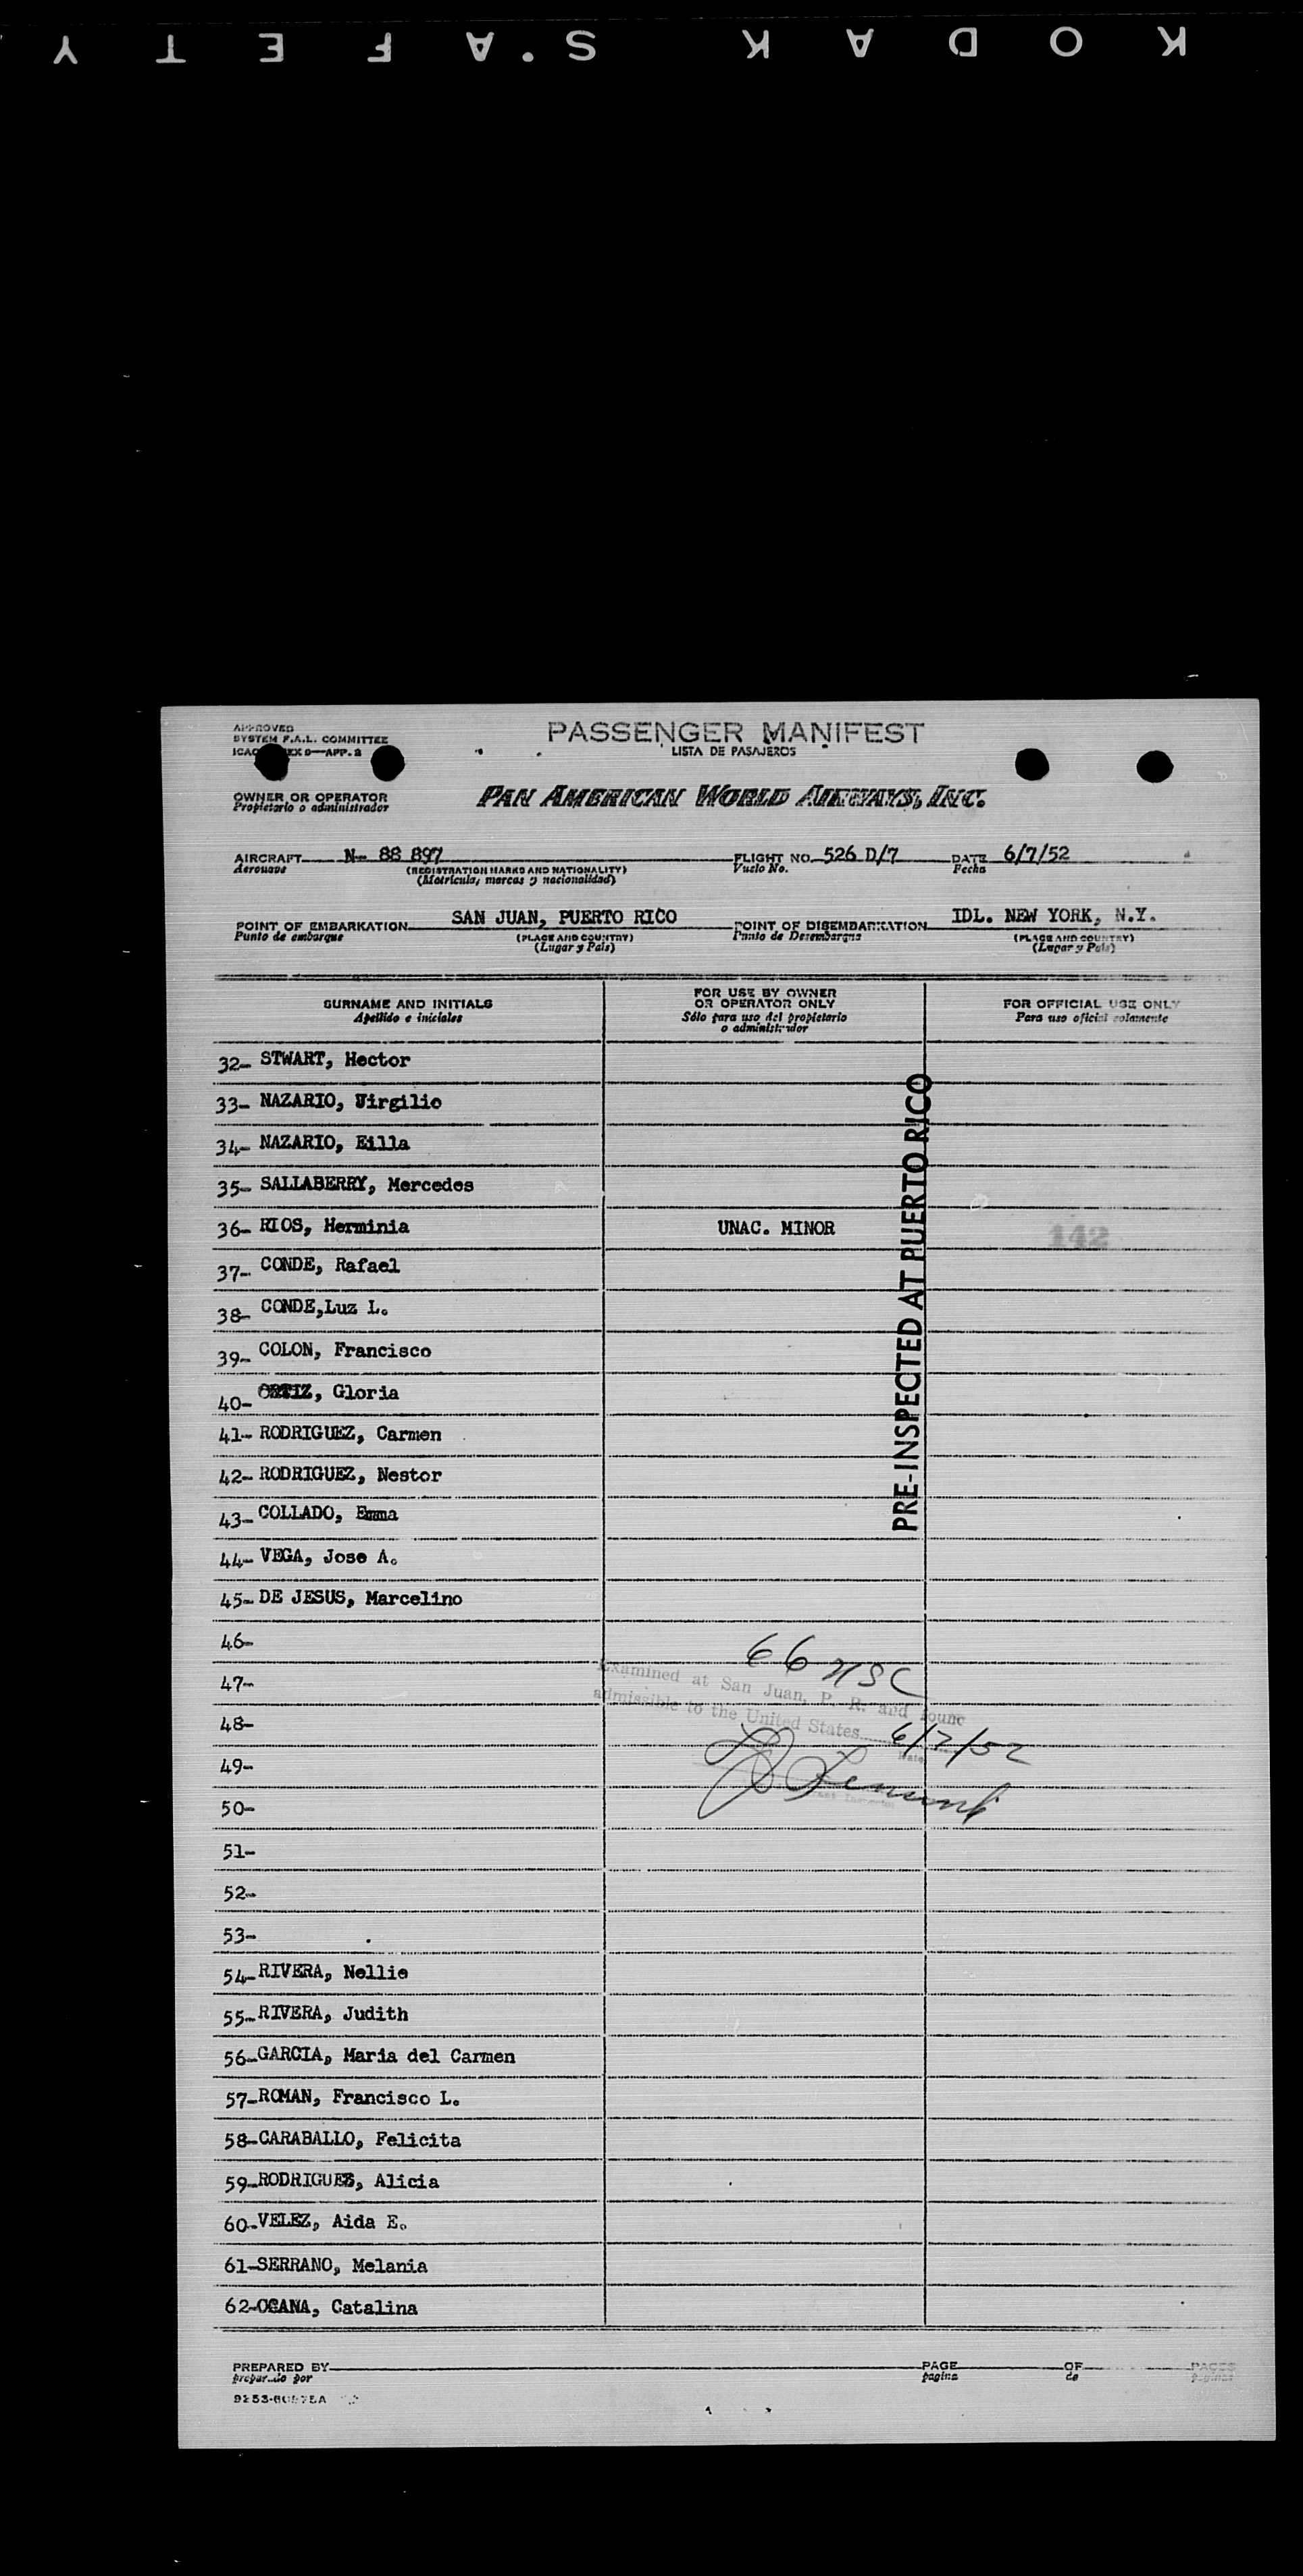 KODAK SAFETY
APPROVED
SYSTEM F.A.L. COMMITTEE
PASSENGER MANIFEST
LISTA DE PASAJEROS
OWNER OR OPERATOR
Propietario o administrador
PAN AMERICAN WORLD AIRWAYS, INC.
AIRCRAFT N- 88 897 FLIGHT NO. 526 D/7 DATE 6/7/52
Aeronave (REGISTRATION MARKS AND NATIONALITY) Vuelo No. Fecha
(Matricula, marcas y nacionalidad)
POINT OF EMBARKATION SAN JUAN, PUERTO RICO POINT OF DISEMBARKATION IDL. NEW YORK, N.Y.
Punto de embarque (PLACE AND COUNTRY) Punto de Desembarque (PLACE AND COUNTRY)
(Lugar y País) (Lugar y País)
SURNAME AND INITIALS
Apellido e iniciales
FOR USE BY OWNER
OR OPERATOR ONLY
Sólo para uso del propietario
o administrador
FOR OFFICIAL USE ONLY
Para uso oficial solamente
32- STWART, Hector
33- NAZARIO, Virgilio
34- NAZARIO, Eilla
35- SALLABERRY, Mercedes
36- RIOS, Herminia UNAC. MINOR 142
37- CONDE, Rafael
38- CONDE,Luz L.
39- COLON, Francisco
40- ORTIZ, Gloria
41- RODRIGUEZ, Carmen
42- RODRIGUEZ, Nestor
43- COLLADO, Emma
44- VEGA, Jose A.
45- DE JESUS, Marcelino
PRE-INSPECTED AT PUERTO RICO
46-
47-
48-
49-
50-
51-
52-
53-
66 USC
Examined at San Juan, P. R. and found
admissible to the United States 6/7/52
Date
54- RIVERA, Nellie
55- RIVERA, Judith
56- GARCIA, Maria del Carmen
57- ROMAN, Francisco L.
58- CARABALLO, Felicita
59- RODRIGUEZ, Alicia
60- VELEZ, Aida E.
61- SERRANO, Melania
62- OCANA, Catalina
PREPARED BY PAGE OF PAGES
preparado por pagina de paginas